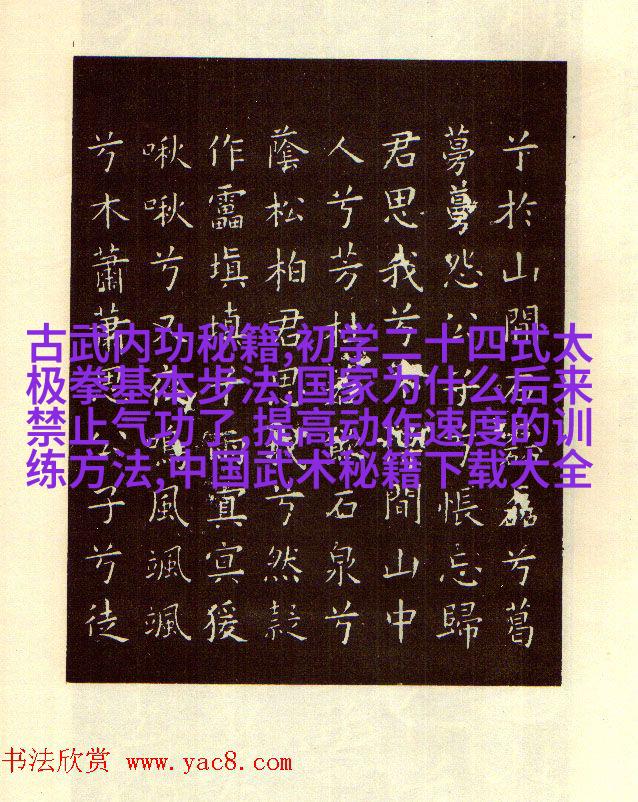 兮於山間石磊磊兮葛
蔓蔓怨公子兮悵忘歸
君思我兮不間山中
人兮芳杜若石泉兮
蔭松柏君思我兮然疑
作靁填填兮雨冥冥猨
啾啾兮又夜鳴風颯颯
兮木蕭蕭思公子兮徒
古武内功秘籍,初学二十四式太
极拳基本步法,国家为什么后来
禁止气功了,提高动作速度的训
练方法,中国武术秘籍下载大全
书法欣赏 www.yac8.com